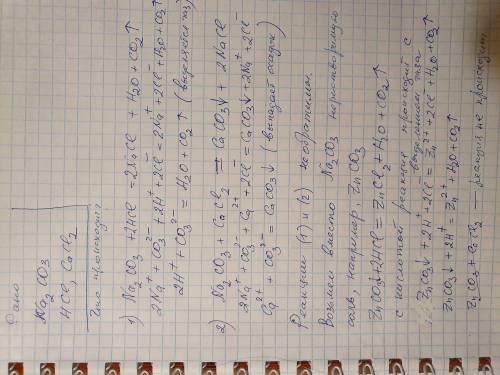 Дано
Na2CO3
HCl, CaCl2
Что происходит?
1) Na2CO3 + 2HCl = 2NaCl + H2O + CO2↑
2Na⁺ + CO3²⁻ + 2H⁺ + 2Cl⁻ = 2Na⁺ + 2Cl⁻ + H2O + CO2↑
2H⁺ + CO3²⁻ = H2O + CO2↑ (выделяется газ)
2) Na2CO3 + CaCl2 = CaCO3↓ + 2NaCl
2Na⁺ + CO3²⁻ + Ca²⁺ + 2Cl⁻ = CaCO3↓ + 2Na⁺ + 2Cl⁻
Ca²⁺ + CO3²⁻ = CaCO3↓ (выпадает осадок)
Реакции (1) и (2) необратимы.
Возьмем вместо Na2CO3 нерастворимую
соль, например, ZnCO3
ZnCO3 + 2HCl = ZnCl2 + H2O + CO2↑
с кислотой реакция происходит с
выделением газа
ZnCO3↓ + 2H⁺ + 2Cl⁻ = Zn²⁺ + 2Cl⁻ + H2O + CO2↑
ZnCO3↓ + 2H⁺ = Zn²⁺ + H2O + CO2↑
ZnCO3 + CaCl2 — реакция не происходит